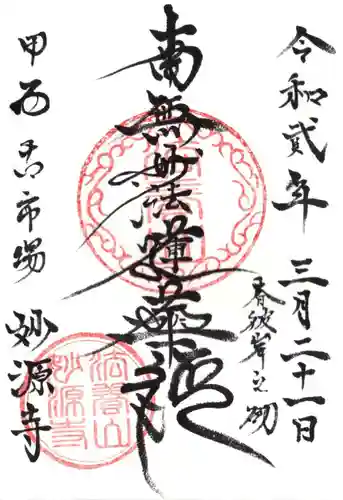 令和貳年 三月二十一日
春彼岸之砌
南無妙法蓮華経
甲西 古市場 妙源寺
法春山
妙源寺